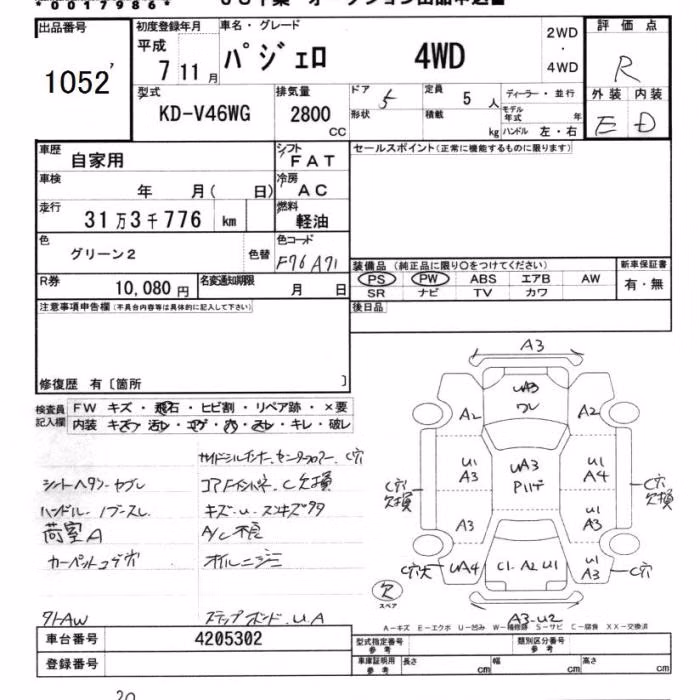 *00179866*
出品番号 初度登録年月 車名・グレード 2WD 評価点
平成 パジェロ 4WD ・ R
1052 7 11月 4WD
型式 排気量 ドア 5 定員 5人 ディーラー・並行 外装 内装
KD-V46WG 2800 形状 積載 モデル年式 年 E D
CC kg ハンドル 左・右
車歴 自家用 シフト FAT セールスポイント(正常に機能するものに限ります)
車検 年 月( 日) 冷房 AC
走行 31万3千776 km 燃料 軽油
色 グリーン2 色替 色コード F76A71
装備品 (純正品に限り○をつけてください) 新車保証書
PS PW ABS エアB AW 有・無
SR ナビ TV カワ
R券 10,080円 名変通知期限 月 日
注意事項申告欄(不具合内容等は具体的に記入して下さい) 後日品
修復歴 有〔箇所 〕
検査員記入欄 FW キズ・飛石・ヒビ割・リペア跡・×要
内装 キズ・汚レ・コゲ・穴・スレ・キレ・破レ
A3
UA3
ワレ
A2 A2
U1 A3 UA3 U1 A4
C穴 欠損 C穴 欠損
A3 U1 A3
C穴大 UA4 C1.A2U1 U1 A3 C穴
A3-U2
欠
スペア
サイドシルインナー、センターフロアー、C穴
シートヘタリ・ヤブレ コアサポート C欠損
ハンドル・ノブスレ キズ・U
荷室A A/C不良
カーペットコゲ穴 オイルニジミ
タトAW ステップボード・UA
A-キズ E-エクボ U-凹み W-補修跡 S-サビ C-腐食 XX-交換済
車台番号 4205302 型式指定番号 参考 類別区分番号 参考
登録番号 車庫証明用 参考 長さ cm 幅 cm 高さ cm